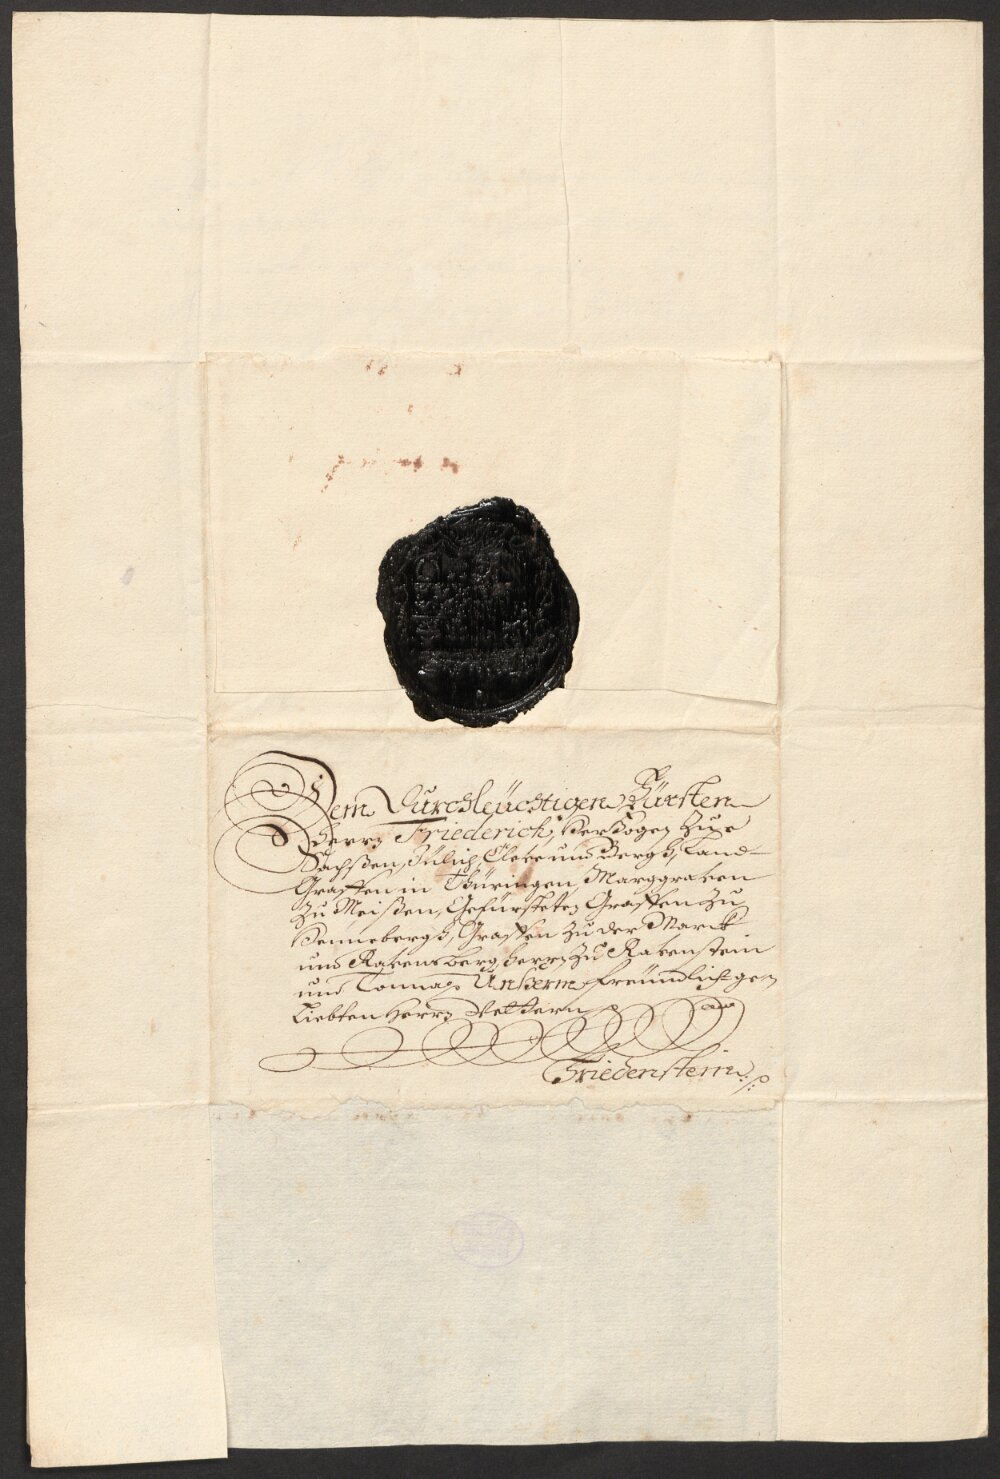 Dem Durchleüchtigen Fürsten
Herrn Friederich, Herzogen zue
Sachßen, Jülich, Cleve und Bergk, Land-
Graffen in Thüringen, Marggraven
zu Meißen, Gefürsteten Graffen zu
Hennebergk, Graffen zu der Marck
und Ravensberg, Herrn zu Ravenstein
und Tonna, Unßerm freündlich ge
Liebten Herrn Vettern
Friedenstein